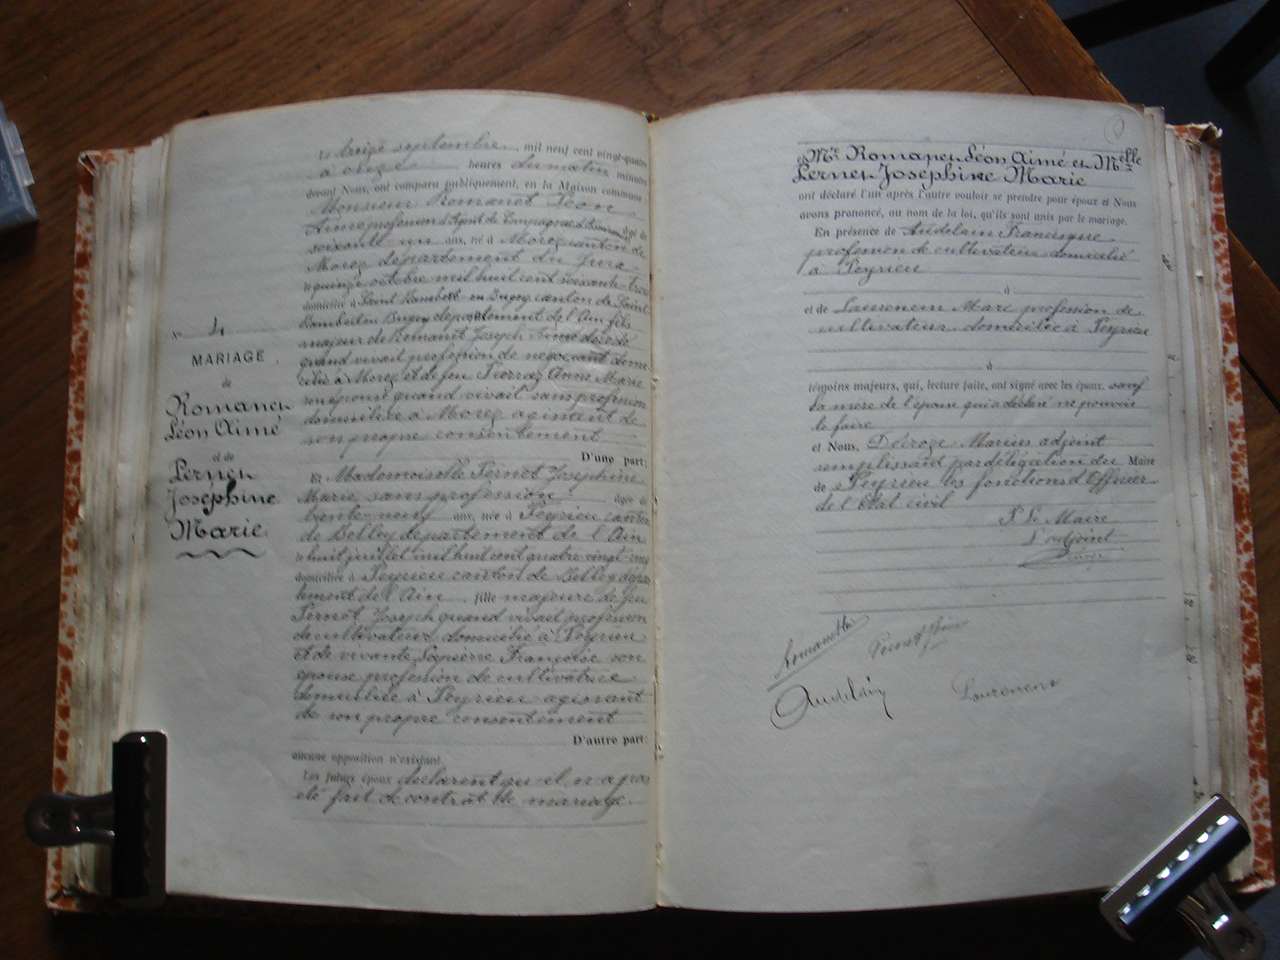 N° 4
MARIAGE
de
Romanet
Léon Aimé
et de
Pernet
Josephine
Marie
Le treize septembre, mil neuf cent vingt-quatre
à onze heures du matin minutes
devant Nous, ont comparu publiquement, en la Maison commune
Monsieur Romanet Léon
Aimé profession d'Agent de Compagnie d'Assurances âgé de
soixante un ans, né à Morez canton de
Morez département du Jura
le quinze octobre mil huit cent soixante-trois
domicilié à Saint Rambert en Bugey canton de Saint
Rambert en Bugey département de l'Ain fils
majeur de Romanet Joseph Aimé décédé
quand vivait profession de négociant domi
cilié à Morez et de feu Pierrez Anne Marie
son épouse quand vivait sans profession
domiciliée à Morez agissant de
son propre consentement
D'une part;
Et Mademoiselle Pernet Josephine
Marie sans profession âgée de
trente-neuf ans, née à Peyrieu canton
de Belley département de l'Ain
le huit juillet mil huit cent quatre vingt-cinq
domiciliée à Peyrieu canton de Belley dépar
tement de l'Ain, fille majeure de feu
Pernet Joseph quand vivait profession
de cultivateur domicilié à Peyrieu
et de vivante Lapierre Françoise son
épouse profession de cultivatrice
domiciliée à Peyrieu agissant
de son propre consentement
D'autre part;
aucune opposition n'existant.
Les futurs époux déclarent qu'il n'a pas
été fait de contrat de mariage.
Mr Romanet Léon Aimé et Melle
Pernet Josephine Marie
ont déclaré l'un après l'autre vouloir se prendre pour époux et Nous
avons prononcé, au nom de la loi, qu'ils sont unis par le mariage.
En présence de Audelain Francisque
profession de cultivateur domicilié
à Peyrieu
à
et de Laurencin Marc profession de
cultivateur domicilié à Peyrieu
à
témoins majeurs, qui, lecture faite, ont signé avec les époux, sauf
la mère de l'épouse qui a déclaré ne pouvoir
le faire
et Nous, Décroze Marius adjoint
remplissant par délégation du Maire
de Peyrieu les fonctions d'Officier
de l'Etat civil
P. Le Maire
L'adjoint
Audelain
Laurencin